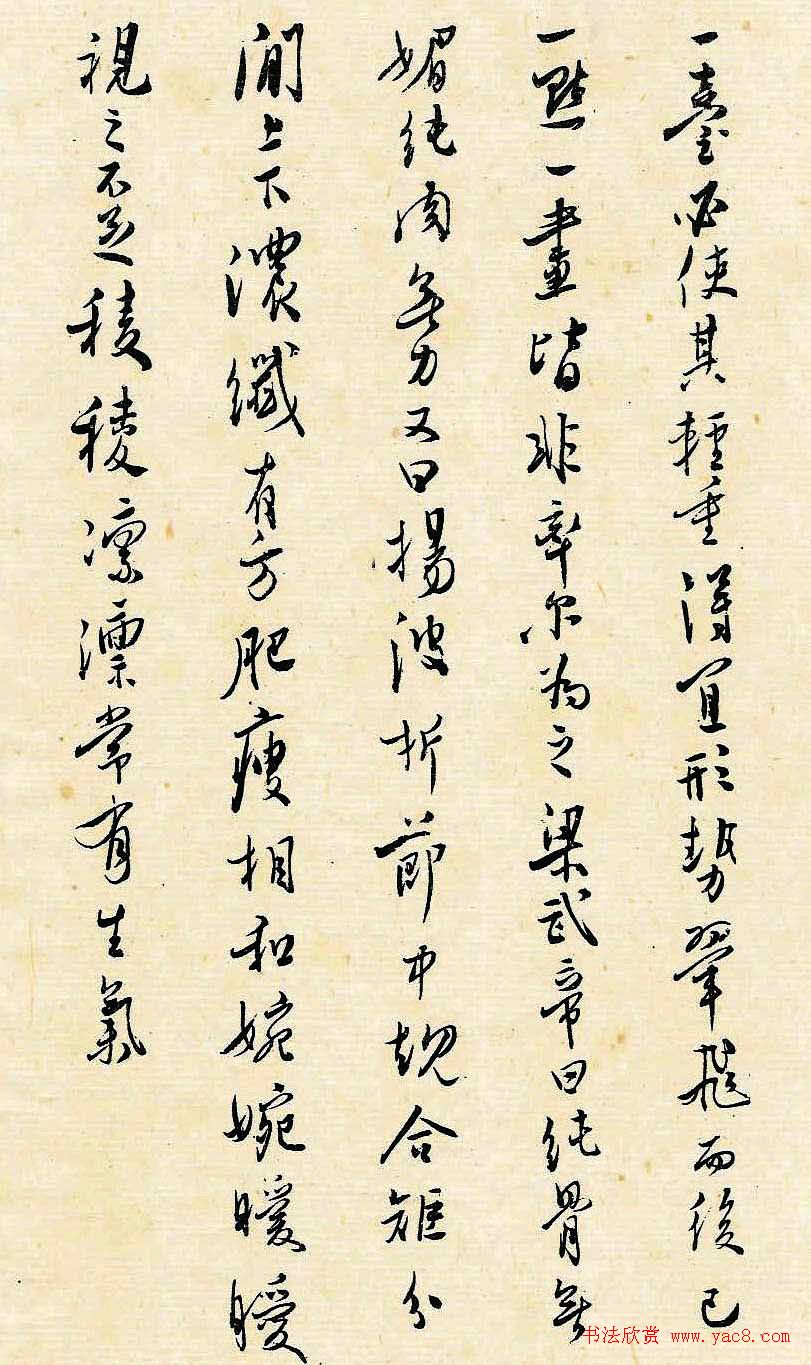 一臺必使其輕重得宜形勢翬飛而後已
一點一畫皆非率尔為之梁武帝曰純骨無
媚純肉無力又曰揚波折節中規合矩分
間上下濃纖有方肥瘦相和婉婉曖曖
視之不足稜稜凛凛常有生氣
书法欣赏 www.yac8.com